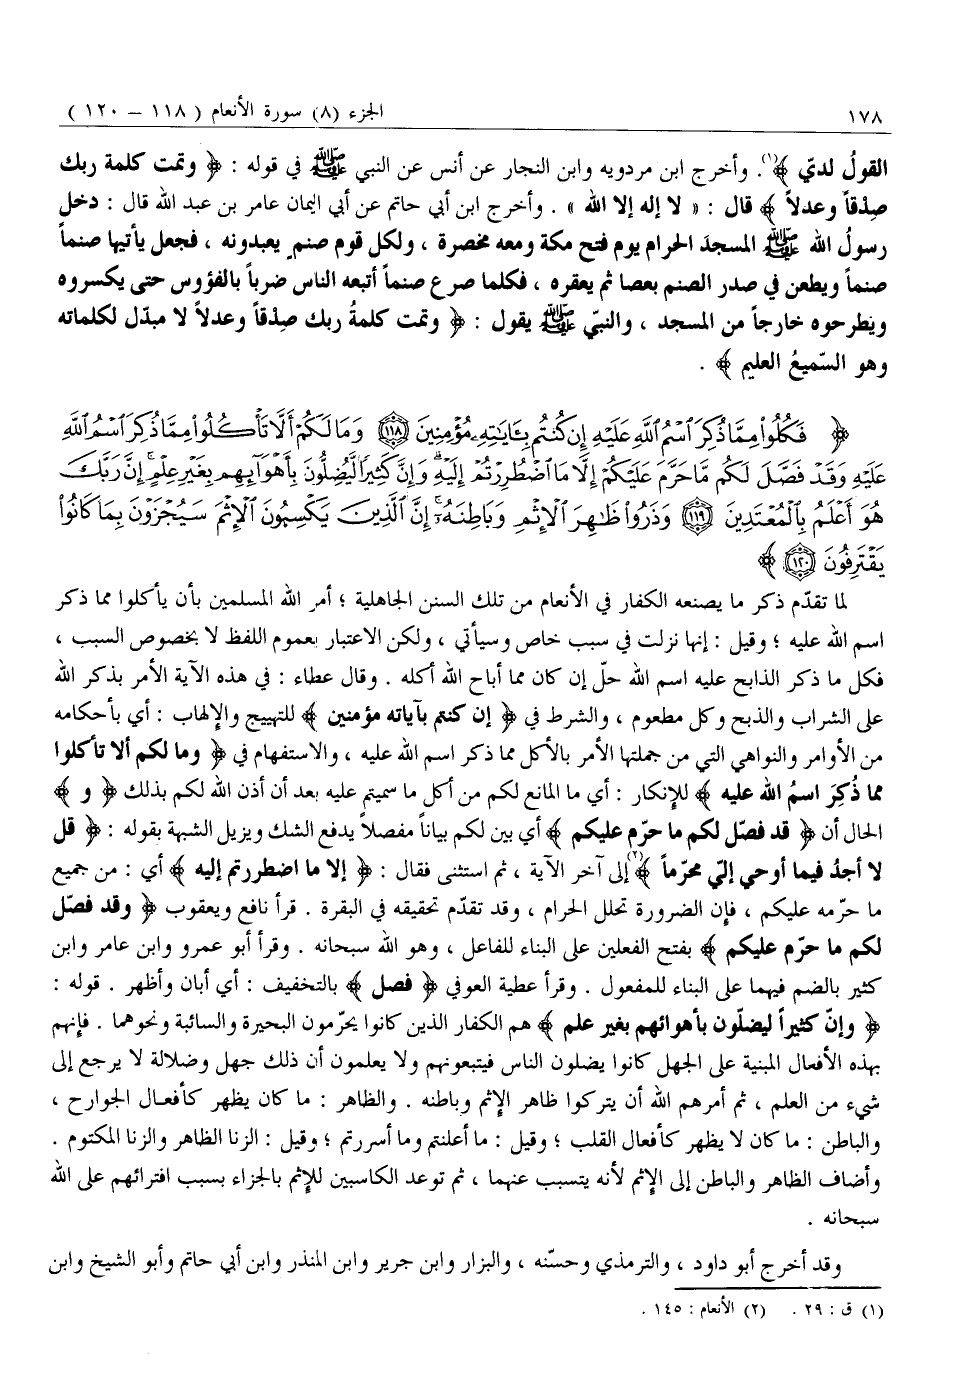 ١٧٨ الجزء (٨) سورة الأنعام ( ١١٨ – ١٢٠ )
القولُ لديّ ﴾(١). وأخرج ابن مردويه وابن النجار عن أنس عن النبي ﷺ في قوله : ﴿ وتمت كلمة ربك
صِدْقاً وعدلاً ﴾ قال : « لا إله إلا الله » . وأخرج ابن أبي حاتم عن أبي اليمان عامر بن عبد الله قال : دخل
رسولُ الله ﷺ المسجدَ الحرام يوم فتح مكة ومعه مخصرة ، ولكل قوم صنم يعبدونه ، فجعل يأتيها صنماً
صنماً ويطعن في صدر الصنم بعصا ثم يعقره ، فكلما صرع صنماً أتبعه الناس ضرباً بالفؤوس حتى يكسروه
ويطرحوه خارجاً من المسجد ، والنبيّ ﷺ يقول : ﴿ وتمت كلمةُ ربك صِدْقاً وعدلاً لا مبدّل لكلماته
وهو السّميعُ العليم ﴾ .
﴿ فَكُلُوا۟ مِمَّا ذُكِرَ ٱسْمُ ٱللَّهِ عَلَيْهِ إِن كُنتُم بِـَٔايَـٰتِهِۦ مُؤْمِنِينَ ١١٨ وَمَا لَكُمْ أَلَّا تَأْكُلُوا۟ مِمَّا ذُكِرَ ٱسْمُ ٱللَّهِ
عَلَيْهِ وَقَدْ فَصَّلَ لَكُم مَّا حَرَّمَ عَلَيْكُمْ إِلَّا مَا ٱضْطُرِرْتُمْ إِلَيْهِ ۗ وَإِنَّ كَثِيرًا لَّيُضِلُّونَ بِأَهْوَآئِهِم بِغَيْرِ عِلْمٍ ۗ إِنَّ رَبَّكَ
هُوَ أَعْلَمُ بِٱلْمُعْتَدِينَ ١١٩ وَذَرُوا۟ ظَـٰهِرَ ٱلْإِثْمِ وَبَاطِنَهُۥٓ ۚ إِنَّ ٱلَّذِينَ يَكْسِبُونَ ٱلْإِثْمَ سَيُجْزَوْنَ بِمَا كَانُوا۟
يَقْتَرِفُونَ ١٢٠ ﴾
لما تقدّم ذكر ما يصنعه الكفار في الأنعام من تلك السنن الجاهلية ؛ أمر الله المسلمين بأن يأكلوا مما ذكر
اسم الله عليه ؛ وقيل : إنها نزلت في سبب خاص وسيأتي ، ولكن الاعتبار بعموم اللفظ لا بخصوص السبب ،
فكل ما ذكر الذابح عليه اسم الله حلّ إن كان مما أباح الله أكله . وقال عطاء : في هذه الآية الأمر بذكر الله
على الشراب والذبح وكل مطعوم ، والشرط في ﴿ إن كنتم بآياته مؤمنين ﴾ للتهييج والإلهاب : أي بأحكامه
من الأوامر والنواهي التي من جملتها الأمر بالأكل مما ذكر اسم الله عليه ، والاستفهام في ﴿ وما لكم ألا تأكلوا
مما ذُكِرَ اسمُ الله عليه ﴾ للإنكار : أي ما المانع لكم من أكل ما سميتم عليه بعد أن أذن الله لكم بذلك ﴿ و ﴾
الحال أن ﴿ قد فصّل لكم ما حرّم عليكم ﴾ أي بين لكم بياناً مفصلاً يدفع الشك ويزيل الشبهة بقوله : ﴿ قل
لا أجدُ فيما أوحي إليّ محرّماً ﴾(٢) إلى آخر الآية ، ثم استثنى فقال : ﴿ إلا ما اضطررتم إليه ﴾ أي : من جميع
ما حرّمه عليكم ، فإن الضرورة تحلل الحرام ، وقد تقدّم تحقيقه في البقرة . قرأ نافع ويعقوب ﴿ وقد فصّل
لكم ما حرّم عليكم ﴾ بفتح الفعلين على البناء للفاعل ، وهو الله سبحانه . وقرأ أبو عمرو وابن عامر وابن
كثير بالضم فيهما على البناء للمفعول . وقرأ عطية العوفي ﴿ فصل ﴾ بالتخفيف : أي أبان وأظهر . قوله :
﴿ وإنّ كثيراً ليضلّون بأهوائهم بغير علم ﴾ هم الكفار الذين كانوا يحرّمون البحيرة والسائبة ونحوهما . فإنهم
بهذه الأفعال المبنية على الجهل كانوا يضلون الناس فيتبعونهم ولا يعلمون أن ذلك جهل وضلالة لا يرجع إلى
شيء من العلم ، ثم أمرهم الله أن يتركوا ظاهر الإثم وباطنه . والظاهر : ما كان يظهر كأفعال الجوارح ،
والباطن : ما كان لا يظهر كأفعال القلب ؛ وقيل : ما أعلنتم وما أسررتم ؛ وقيل : الزنا الظاهر والزنا المكتوم .
وأضاف الظاهر والباطن إلى الإثم لأنه يتسبب عنهما ، ثم توعد الكاسبين للإثم بالجزاء بسبب افترائهم على الله
سبحانه .
وقد أخرج أبو داود ، والترمذي وحسّنه ، والبزار وابن جرير وابن المنذر وابن أبي حاتم وأبو الشيخ وابن
(١) ق : ٢٩ . (٢) الأنعام : ١٤٥ .